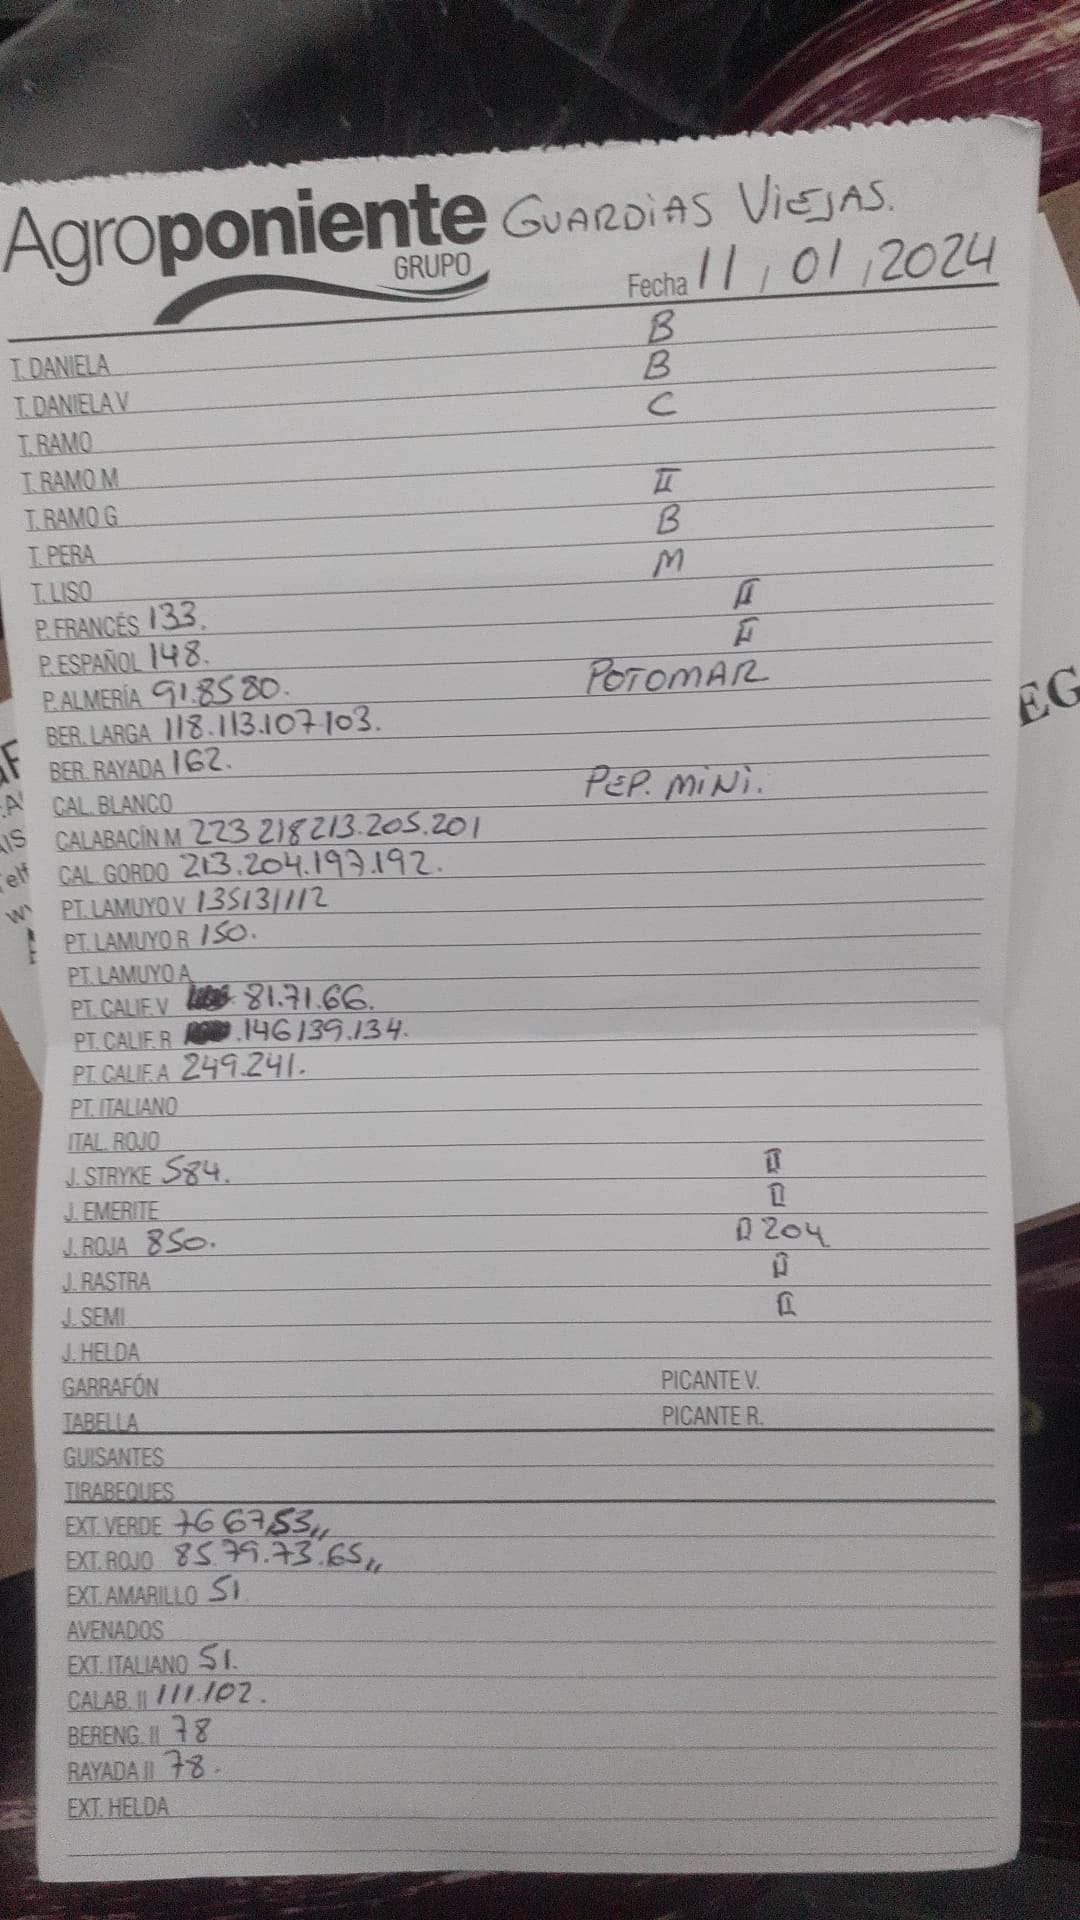 Agroponiente GUARDIAS VIEJAS.
GRUPO
Fecha 11, 01, 2024
T. DANIELA B
T. DANIELA V B
T. RAMO C
T. RAMO M
T. RAMO G II
T. PERA B
T. LISO M
P. FRANCÉS 133. II
P. ESPAÑOL 148. II
P. ALMERÍA 91.85 80. POTOMAR
BER. LARGA 118.113.107 103.
BER. RAYADA 162.
CAL. BLANCO PEP. MINI.
CALABACÍN M 223 218 213.205.201
CAL. GORDO 213.204.197.192.
PT. LAMUYO V 135131112
PT. LAMUYO R 150.
PT. LAMUYO A
PT. CALIF. V 81.71.66.
PT. CALIF. R .146139.134.
PT. CALIF. A 249.241.
PT. ITALIANO
ITAL. ROJO
J. STRYKE 584. II
J. EMERITE II
J. ROJA 850. II 204
J. RASTRA II
J. SEMI II
J. HELDA
GARRAFÓN PICANTE V.
TABELLA PICANTE R.
GUISANTES
TIRABEQUES
EXT. VERDE 76 67,53,,
EXT. ROJO 85 79.73.65,,
EXT. AMARILLO 51
AVENADOS
EXT. ITALIANO 51.
CALAB. II 111.102.
BERENG. II 78
RAYADA II 78.
EXT. HELDA
EG